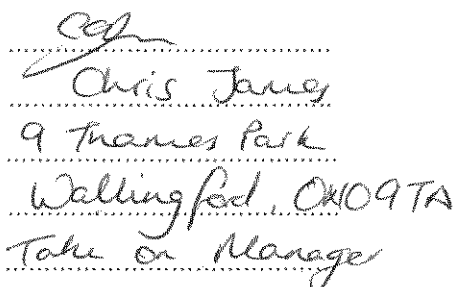 Chris James
9 Thames Park
Wallingford, OX109TA
Take on Manager